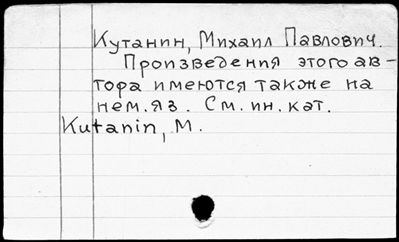 Кутанин, Михаил Павлович.
Произведения этого ав-
тора имеются также на
нем. яз. См. ин. кат.
Kutanin, M.